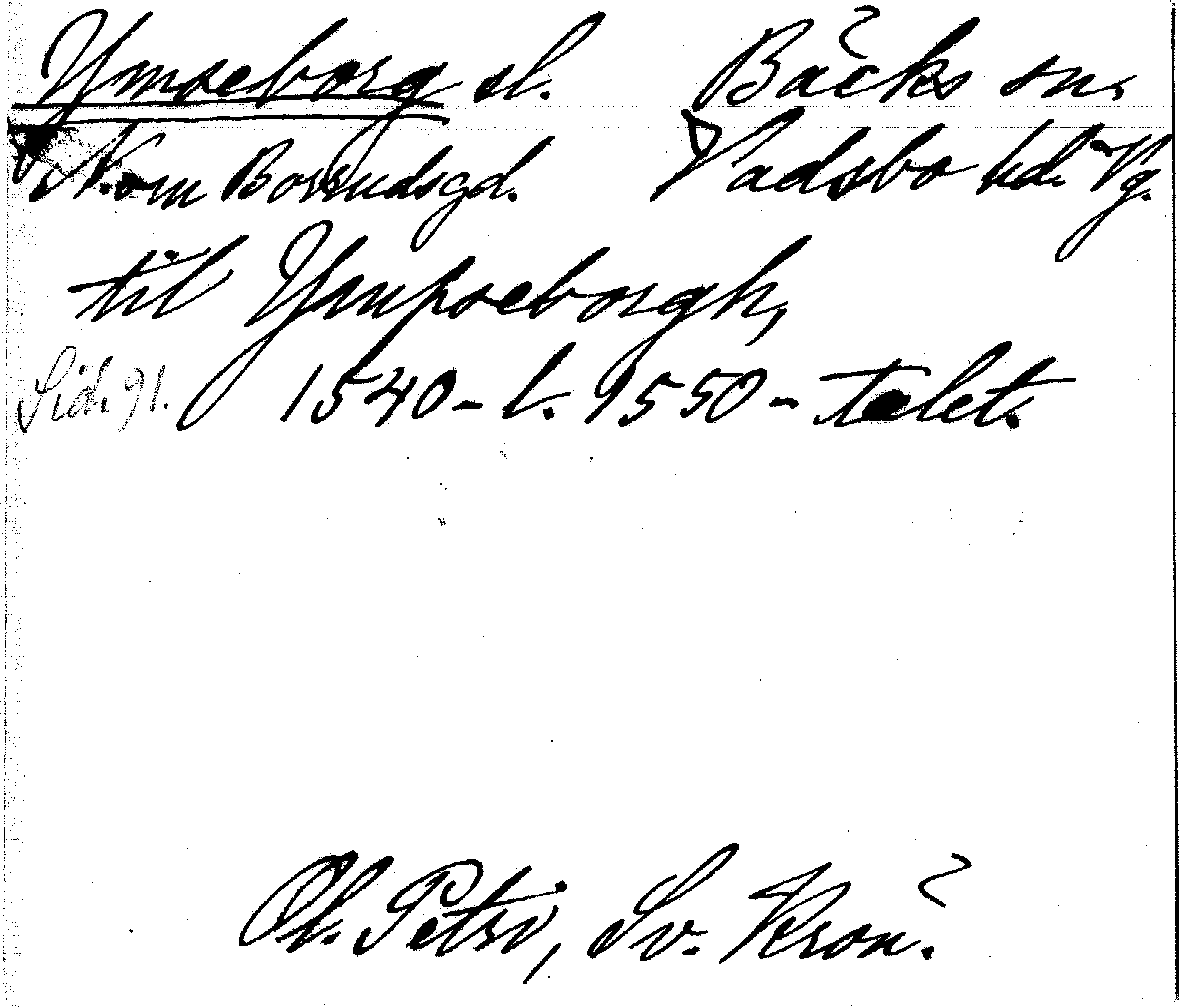 Ymseborg sl. Bäcks sn.
N. om Borrudsgd. Vadsbo hd. Vg.
til Ympseborgh,
Sid. 91. 1540- l. 1550-talet.
Ol. Petri, Sv. Krön.